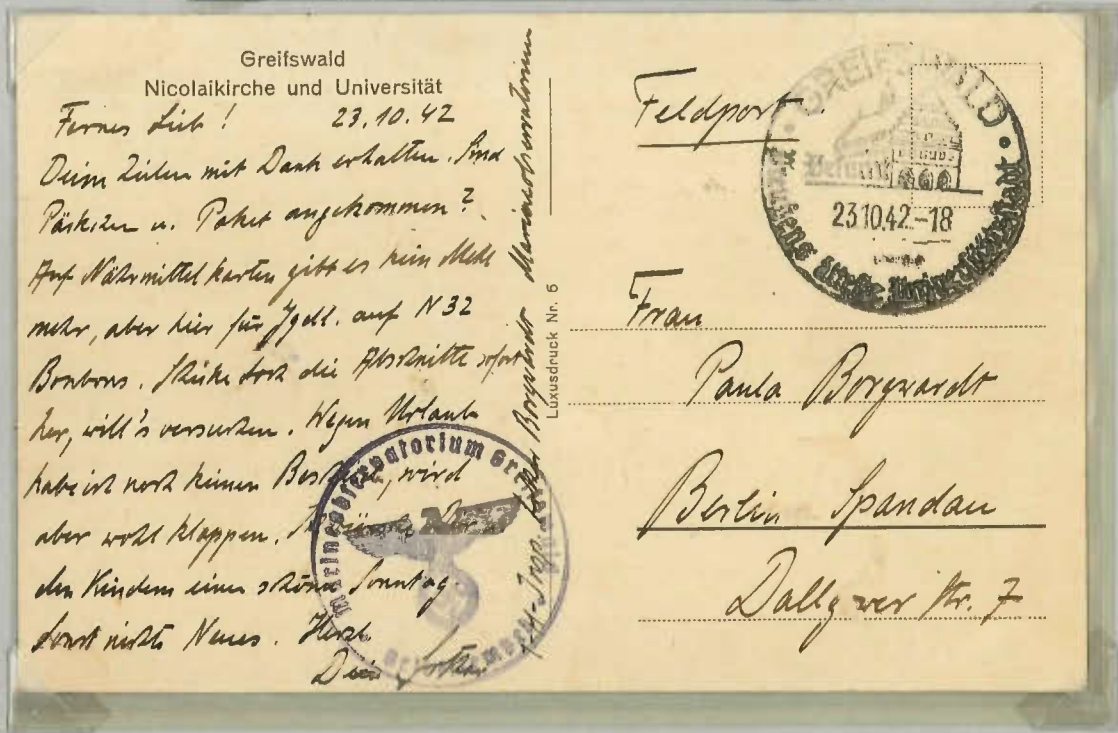 Greifswald
Nicolaikirche und Universität
Fernes Lieb! 23.10.42
Deine Zeilen mit Dank erhalten. Sind
Päckchen u. Paket angekommen?
Auf Nährmittelkarten gibt es kein Mehl
mehr, aber hier für Jgdl. auf N 32
Bonbons. Schicke doch die Abschnitte sofort
her, will's versuchen. Wegen Urlaub
habe ich noch keinen Bescheid, wird
aber wohl klappen.
den Kindern einen schönen Sonntag.
Sonst nichts Neues. Herzl.
Dein
Borgwardt Marineobservatorium
Luxusdruck Nr. 6
Marineobservatorium Greifswald
Feldpost
GREIFSWALD
23.10.42.-18
älteste Universitätsstadt
Frau
Paula Borgwardt
Berlin Spandau
Dallgower Str. 7